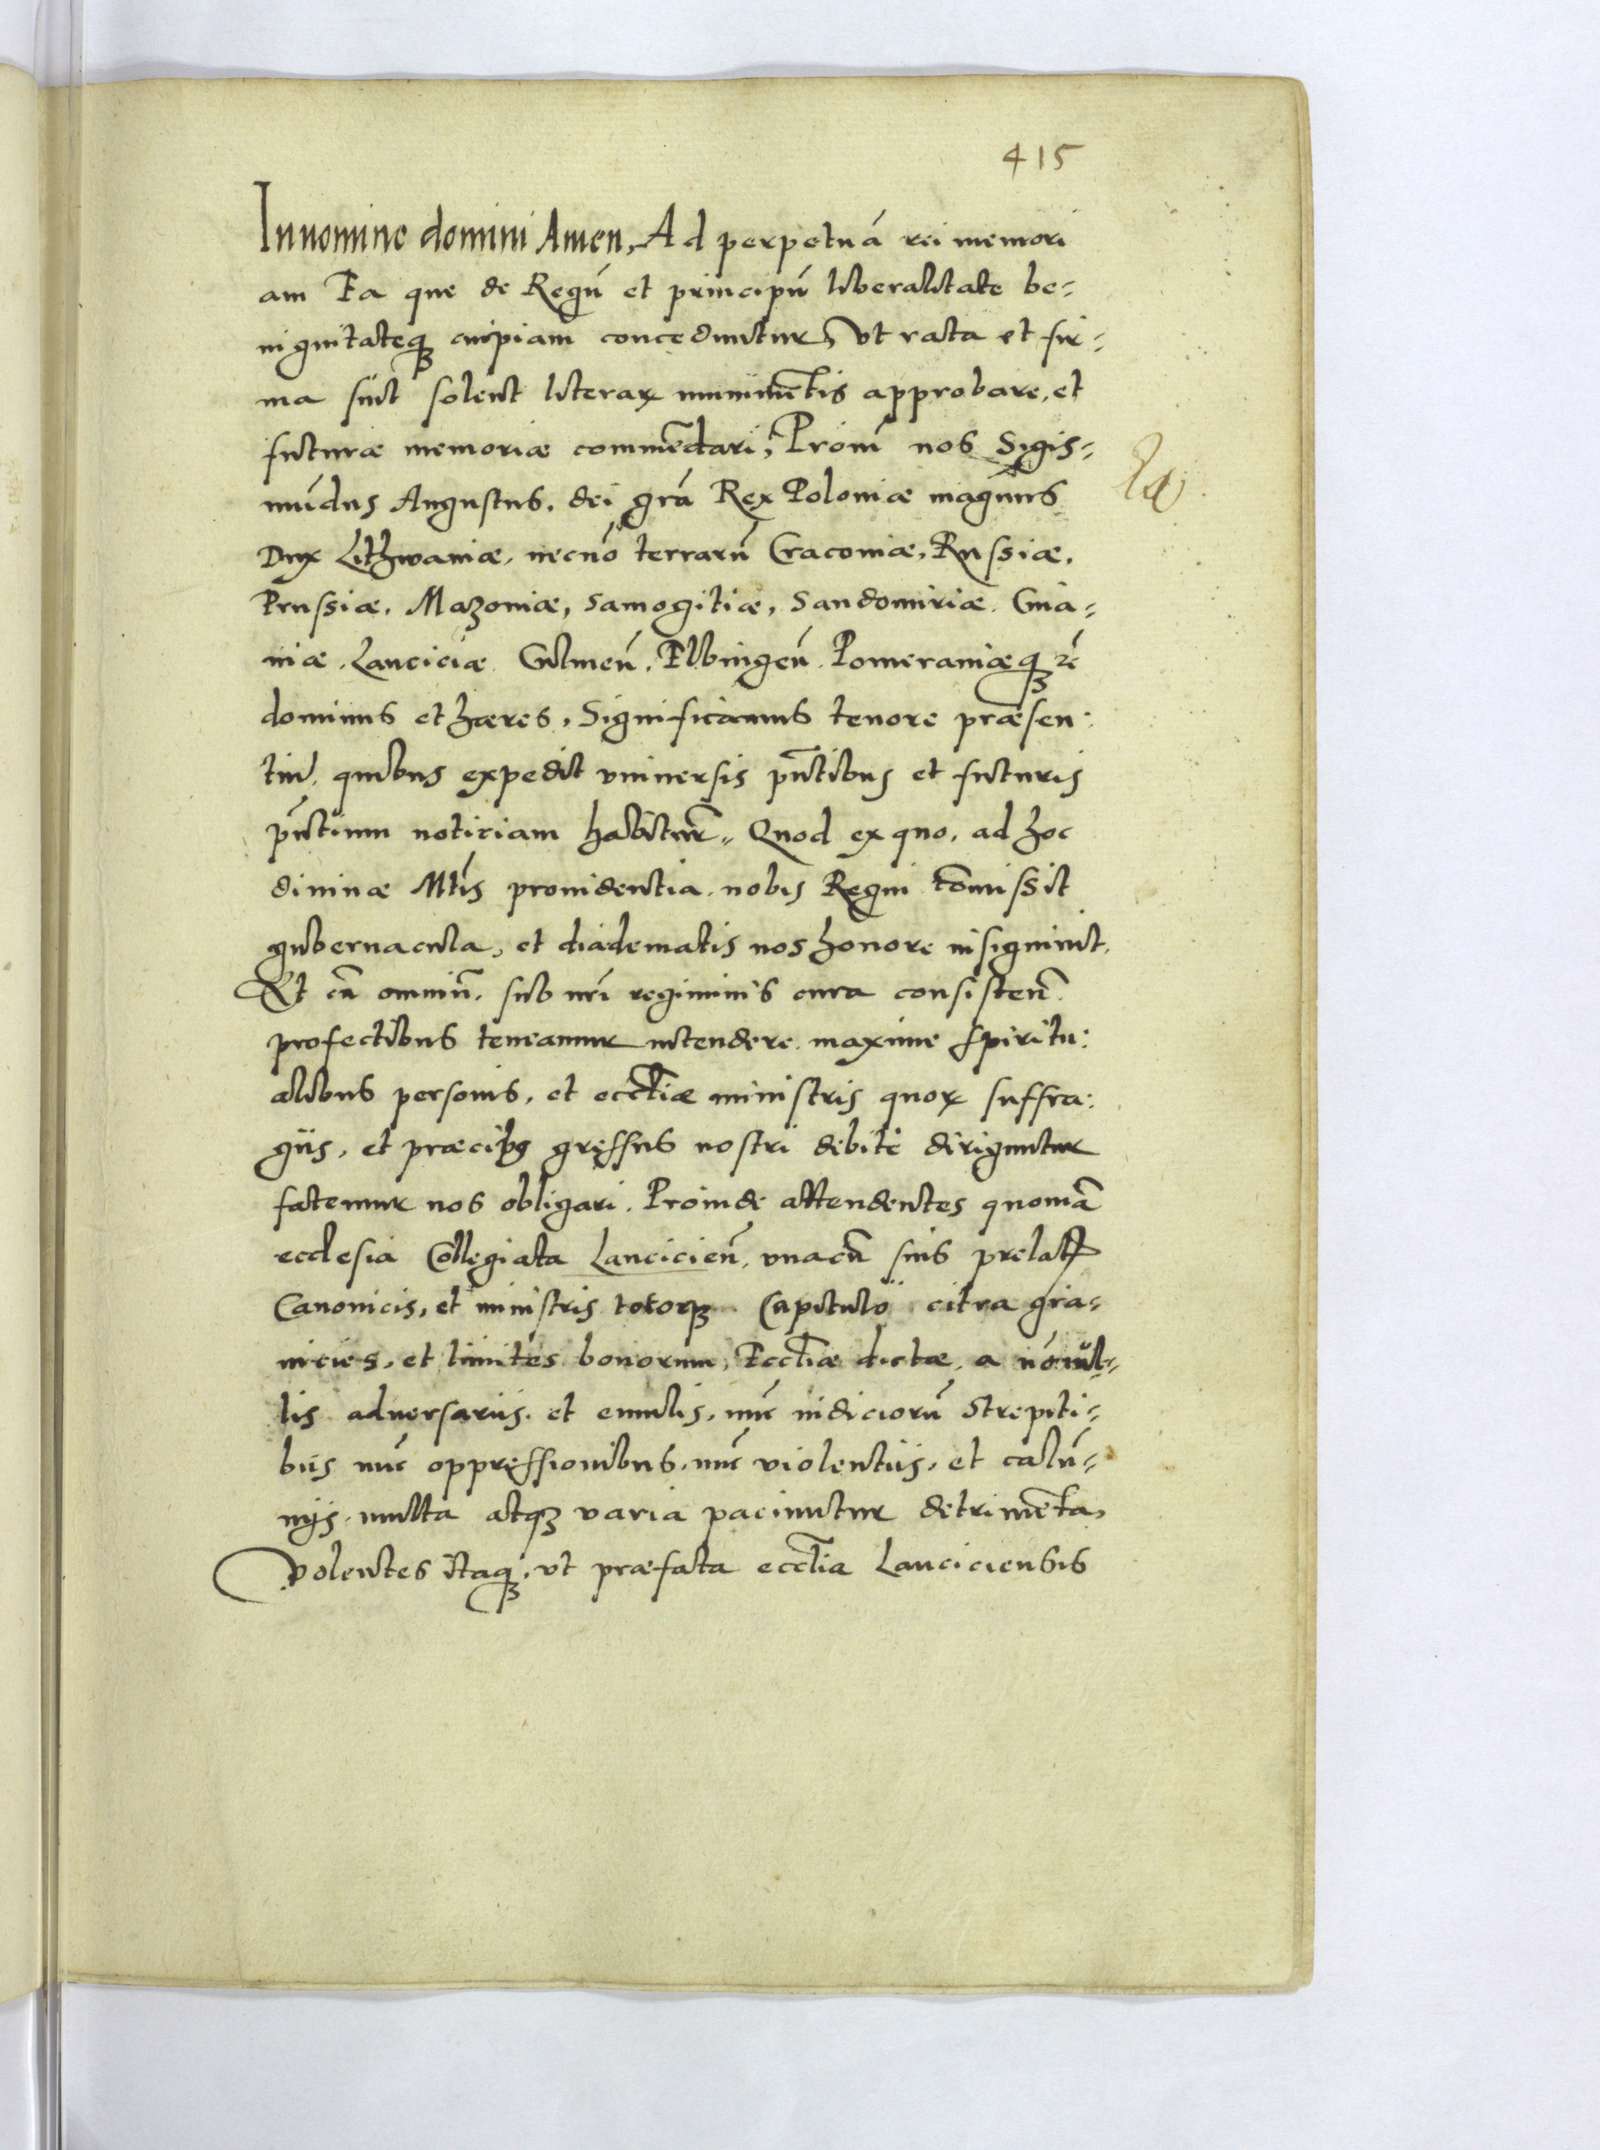 415
In nomine domini Amen, Ad perpetuā rei memori
am Ea que de Regū et principū liberalitate be-
nignitateq₃ cuipiam conceduntur, vt rata et fir-
ma sint solent literaꝝ munimētis approbare, et
futuræ memoriæ commēdari, Proin̄ nos Sigis-
mūdus Augustus, dei grā Rex Poloniæ magnus
Dux Lithwaniæ, necnō terrarū Cracoviæ, Russiæ,
Prussiæ, Mazoviæ, Samogitiæ, Sandomiriæ, Cuia-
viæ, Lanciciæ Culmeñ, Elbingeñ Pomeraniæq₃ ꝛc̄
dominus et hæres, Significamus tenore præsen-
tiū, quibus expedit vniuersis pn̄tibus et futuris
pn̄tium noticiam habiturꝭ, Quod ex quo, ad hoc
diuinæ Mtīs prouidentia, nobis Regni cōmissit
gubernacula, et diadematis nos honore insigniuit,
Et cū omniū, sub nr̄i regiminis cura consisteñ
profectibus teneamur intendere maxime spiritu-
alibus personis, et eccl̄iæ ministris quoꝝ suffra-
giis, et præcibꝯ gressus nostri debite diriguntur
fatemur nos obligari. Proinde attendentes quoniā
ecclesia Collegiata Lancicieñ, vnacū suis prelatꝭ
Canonicis, et ministris totoq₃ Capitulo citra gra-
nicies, et limites bonorum, Eccl̄iæ dictæ, a nōnul-
lis adversariis, et emulis, nūc iudiciorū strepiti-
bus nūc oppressionibus, nūc violentiis, et calū-
nijs, multa atq₃ varia paciuntur detrimēta,
Volentes itaq₃, vt præfata eccl̄ia Lanciciensis